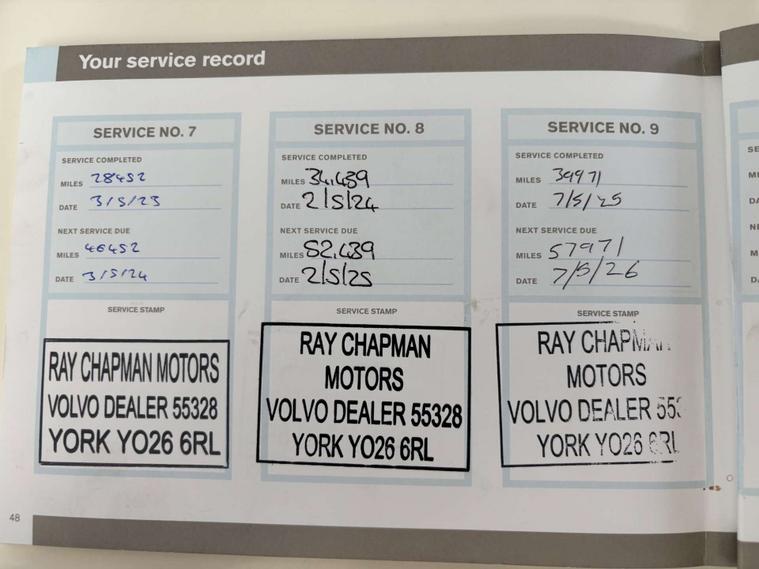 Your service record
SERVICE NO. 7
SERVICE COMPLETED
MILES 28452
DATE 3/5/23
NEXT SERVICE DUE
MILES 46452
DATE 3/5/24
SERVICE STAMP
RAY CHAPMAN MOTORS
VOLVO DEALER 55328
YORK YO26 6RL
SERVICE NO. 8
SERVICE COMPLETED
MILES 34,439
DATE 2/5/24
NEXT SERVICE DUE
MILES 52,439
DATE 2/5/25
SERVICE STAMP
RAY CHAPMAN
MOTORS
VOLVO DEALER 55328
YORK YO26 6RL
SERVICE NO. 9
SERVICE COMPLETED
MILES 39971
DATE 7/5/25
NEXT SERVICE DUE
MILES 57971
DATE 7/5/26
SERVICE STAMP
RAY CHAPMAN
MOTORS
VOLVO DEALER 553
YORK YO26 6RL
48